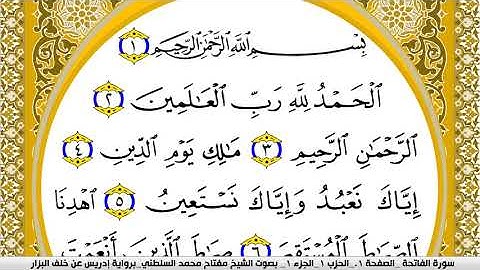 بِسْمِ اللَّهِ الرَّحْمَٰنِ الرَّحِيمِ ١
الْحَمْدُ لِلَّهِ رَبِّ الْعَالَمِينَ ٢
الرَّحْمَٰنِ الرَّحِيمِ ٣ مَالِكِ يَوْمِ الدِّينِ ٤
إِيَّاكَ نَعْبُدُ وَإِيَّاكَ نَسْتَعِينُ ٥ اهْدِنَا
الصِّرَاطَ الْمُسْتَقِيمَ ٦ صِرَاطَ الَّذِينَ أَنْعَمْتَ
سورة الفاتحة_ الصفحة ١_ الحزب ١_ الجزء ١_ بصوت الشيخ مفتاح محمد السلطني_برواية إدريس عن خلف البزار